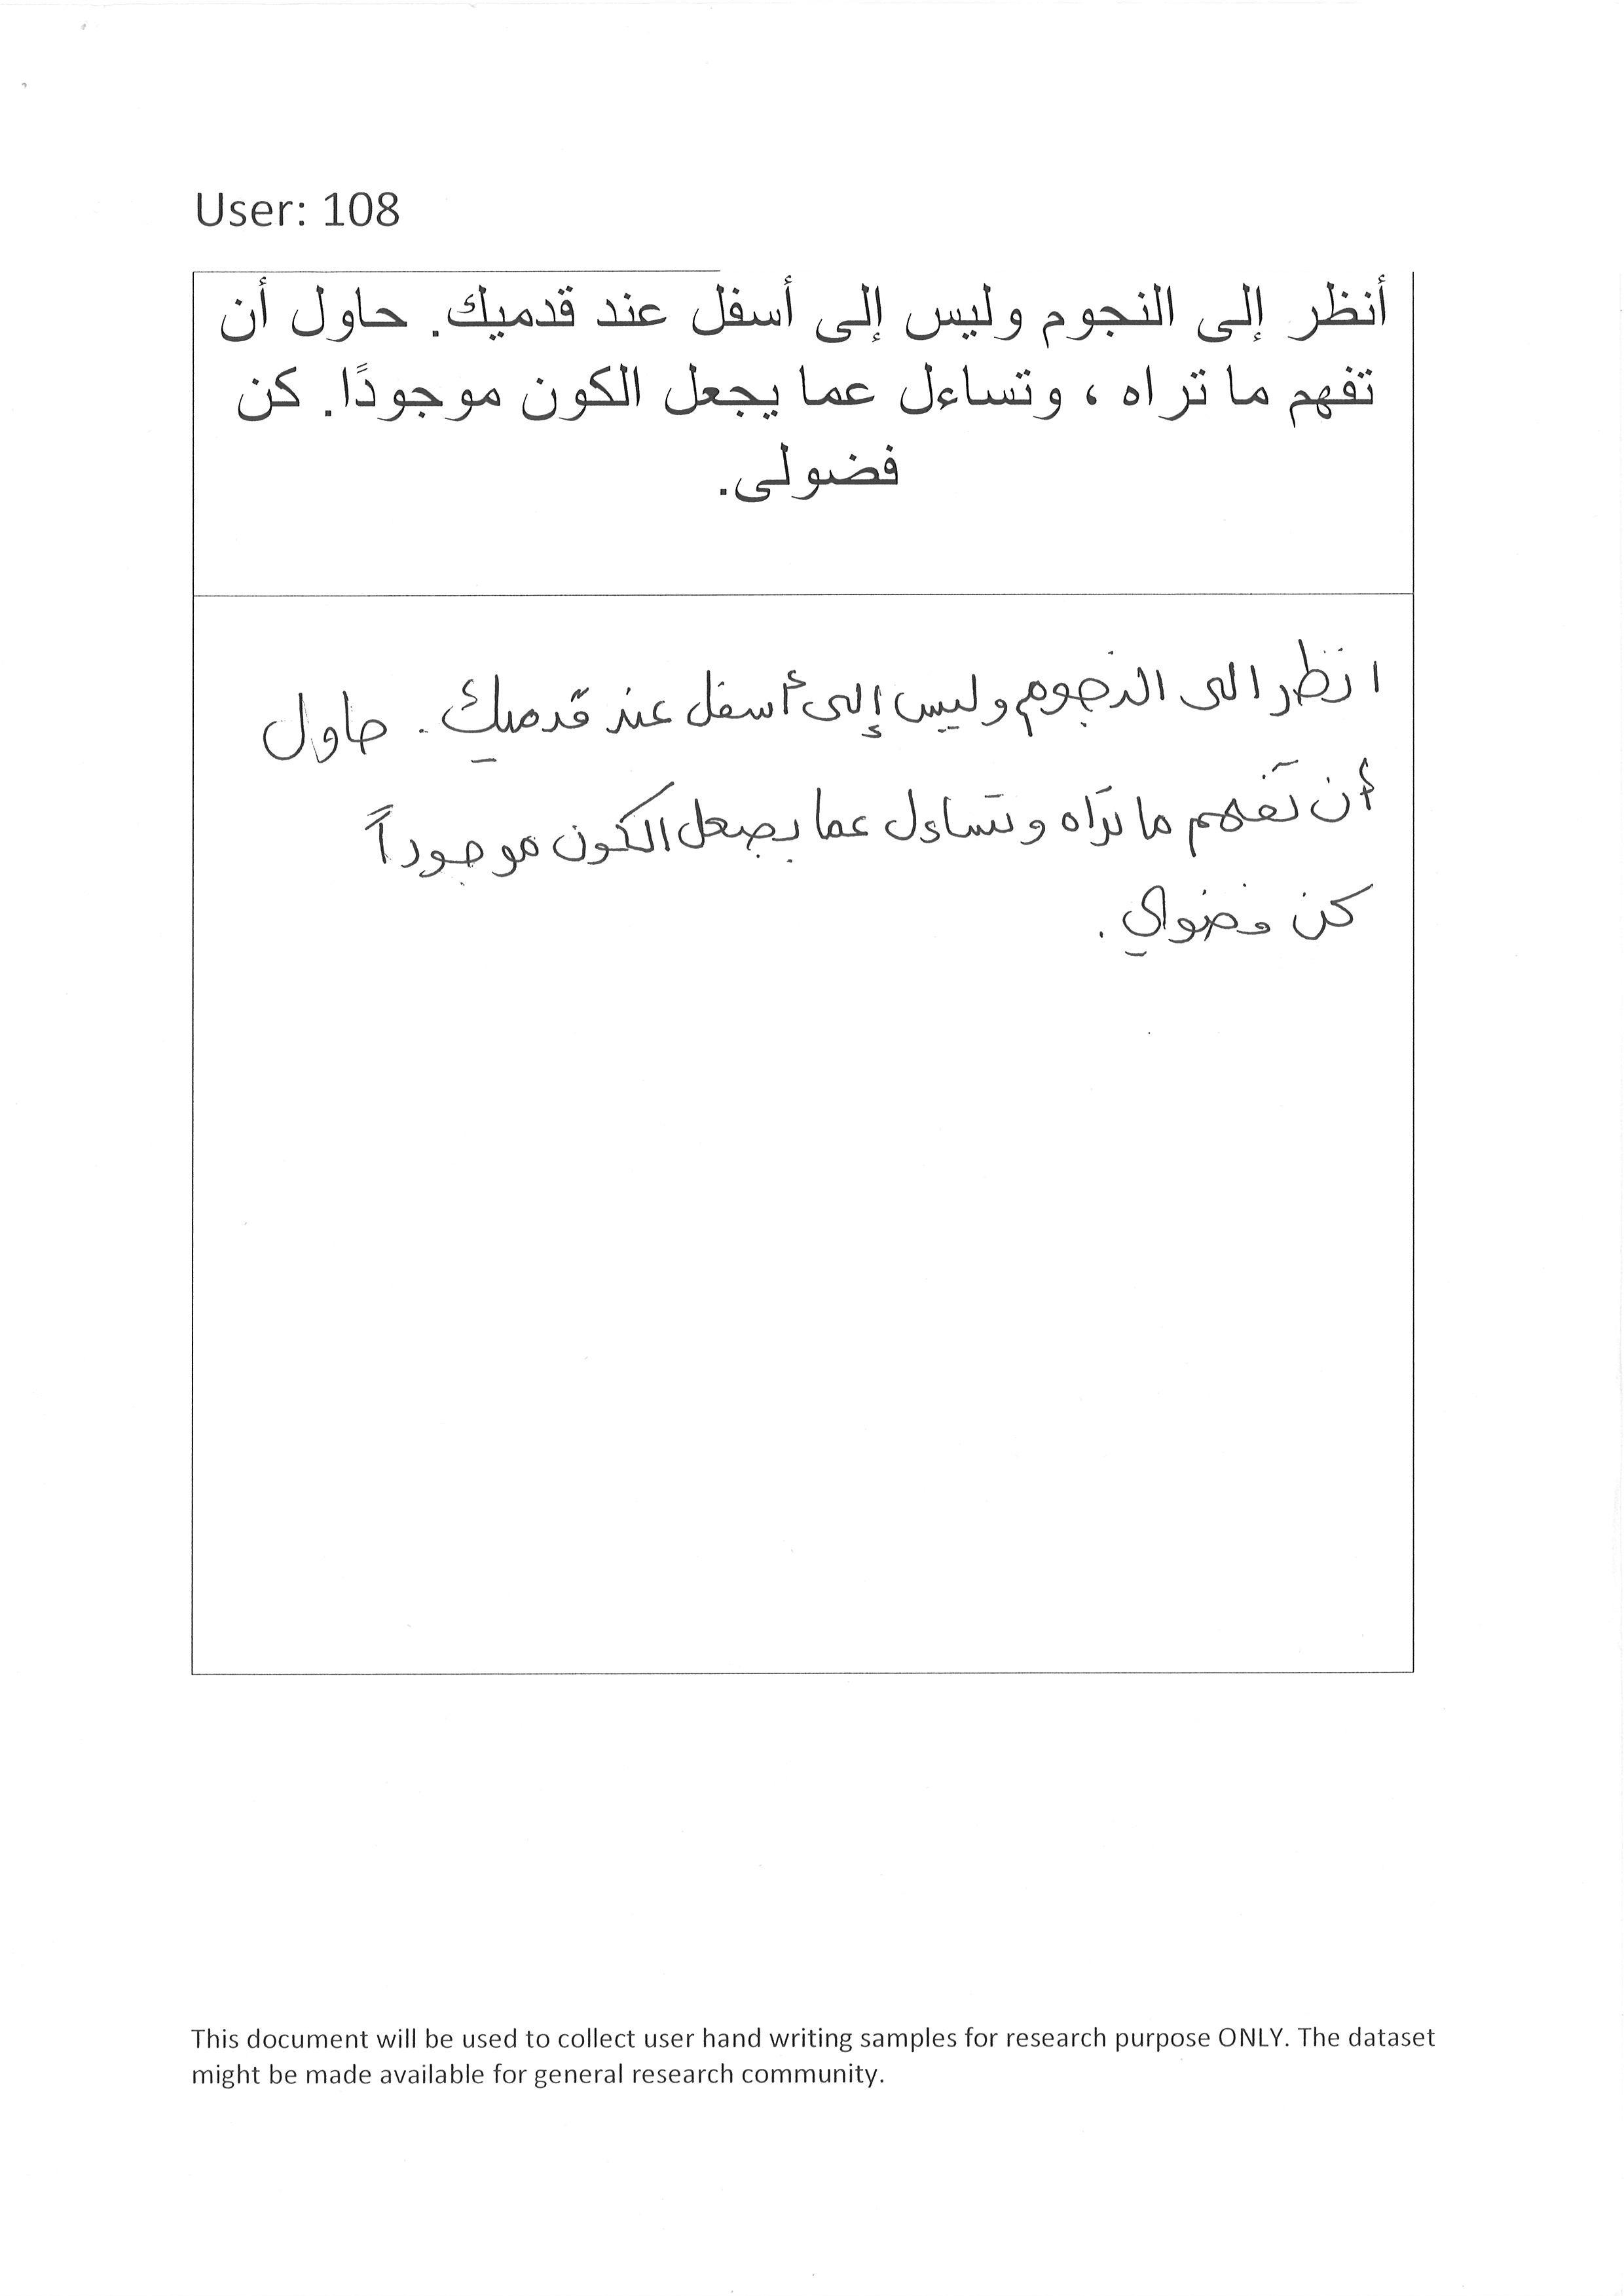 User: 108
أنظر إلى النجوم وليس إلى أسفل عند قدميك. حاول أن
تفهم ما تراه ، وتساءل عما يجعل الكون موجودًا. كن
فضولى.
انظر الى النجوم وليس إلى أسفل عند قدميك. حاول
أن تفهم ما تراه وتساءل عما يجعل الكون موجوداً
كن فضولي.
This document will be used to collect user hand writing samples for research purpose ONLY. The dataset
might be made available for general research community.